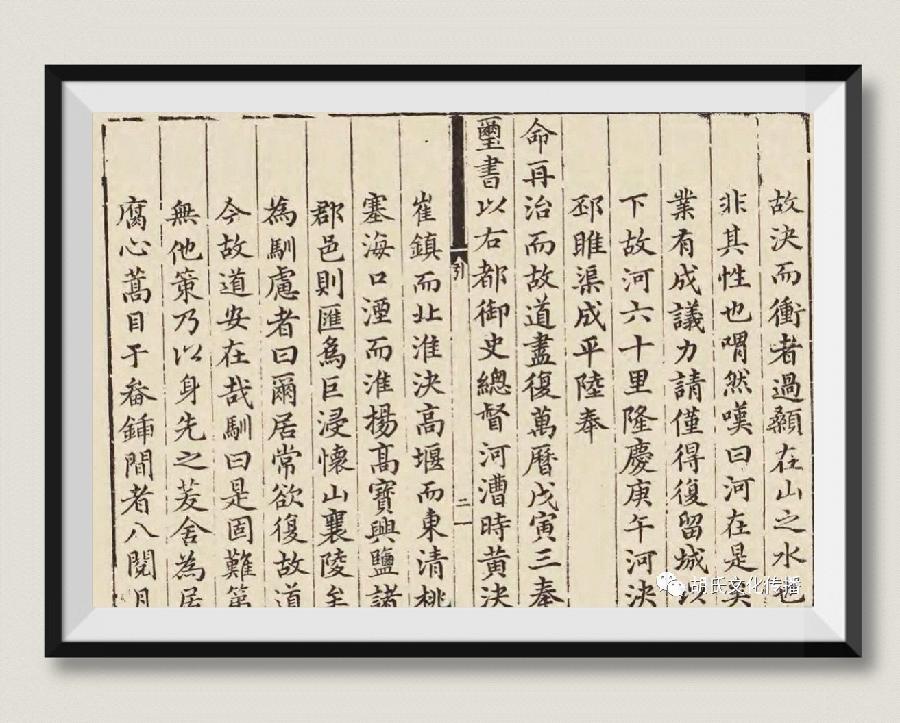 故決而衝者過顙在山之水也
非其性也喟然嘆曰河在是矣
業有成議力請僅得復留城以
下故河六十里隆慶庚午河決
邳睢渠成平陸奉
命再治而故道盡復萬曆戊寅三奉
璽書以右都御史總督河漕時黃決
引
二
崔鎮而北淮決高堰而東清桃
塞海口湮而淮揚高寶興鹽諸
郡邑則匯為巨浸懷山襄陵矣
為馴慮者曰爾居常欲復故道
今故道安在哉馴曰是固難第
無他策乃以身先之茇舍為居
腐心蒿目于畚鍤間者八閱月
胡氏文化传播